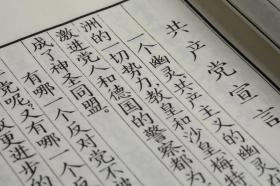 共产党宣言
一个幽灵,共产主义的幽灵
洲的一切势力,教皇和沙皇、梅特
激进党人和德国的警察都为
成了神圣同盟。
有哪一个反对党不
党呢?又有哪一个
更进步的